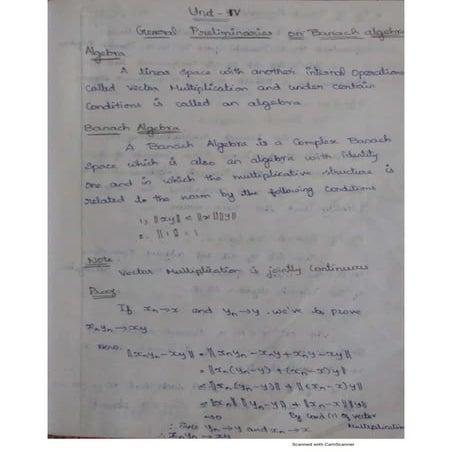 Unit - IV
General Preliminaries on Banach algebra
Algebra
A linear space with another internal Operations
called vector Multiplication and under certain
Conditions is called an algebra
Banach Algebra
A Banach Algebra is a Complex Banach
Space which is also an algebra with identity
one and in which the multiplicative structure is
related to the norm by the following conditions
1, ||xy|| ≤ ||x|| ||y||
2. ||1|| = 1
Note
Vector Multiplication is jointly Continuous
Proof
If xₙ→x and yₙ→y, we've to prove
xₙyₙ→xy
||xₙyₙ-xy|| = ||xₙyₙ-xₙy+xₙy-xy||
= ||xₙ(yₙ-y) + (xₙ-x)y||
≤ ||xₙ(yₙ-y)|| + ||(xₙ-x)y||
≤ ||xₙ|| ||yₙ-y|| + ||xₙ-x|| ||y||
→0 By cond (1) of vector
∴ Since yₙ→y and xₙ→x Multiplication
∴ xₙyₙ→xy
Scanned with CamScanner